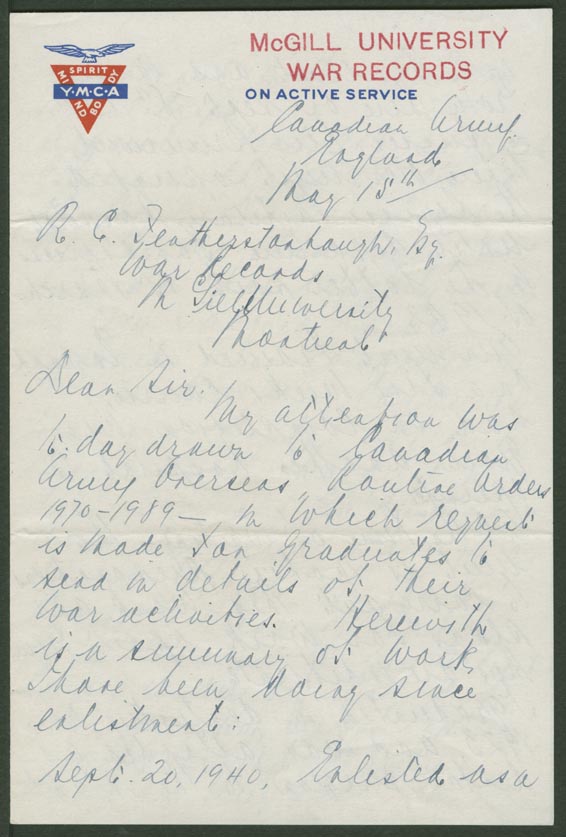 McGILL UNIVERSITY
WAR RECORDS
SPIRIT
MIND
BODY
Y·M·C·A
ON ACTIVE SERVICE
Canadian Army.
England
May 15th
R. C. Featherstonhaugh, Esq.
War Records
McGill University
Montreal
Dear Sir.
My attention was
to-day drawn to Canadian
Army Overseas Routine Orders
1970-1989-, in which request
is made for Graduates to
send in details of their
war activities. Herewith
is a summary of work,
I have been doing since
enlistment:
Sept. 20, 1940, Enlisted as a